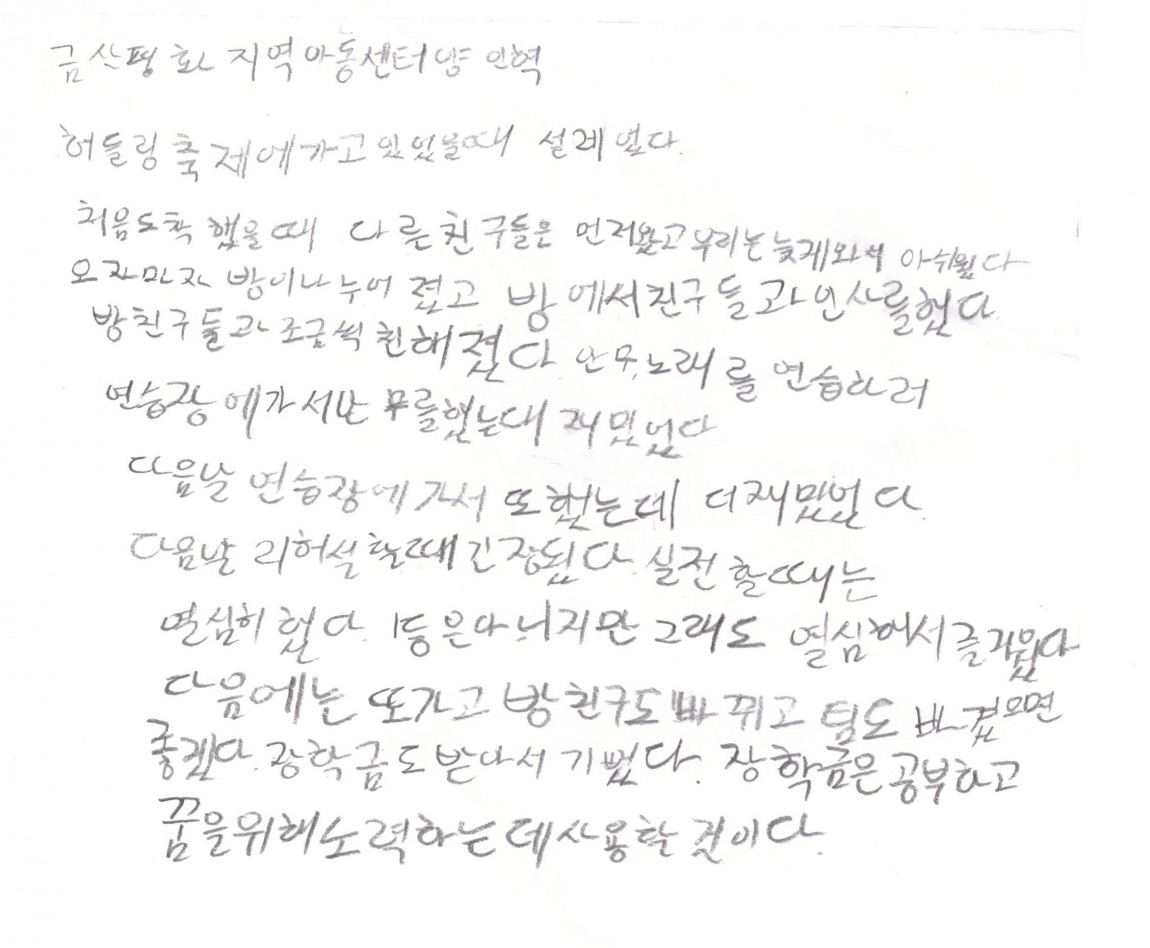 금산평화 지역아동센터 양인혁
허들링축제에가고있었을때 설레였다.
처음도착 했을때 다른친구들은 먼저왔고 우리는 늦게와서 아쉬웠다
오자마자 방이나누어 졌고 방에서친구들과인사를했다.
방친구들과 조금씩 친해졌다 안무,노래를 연습하러
연습장에가서안무를했는대 재밌었다
다음날 연습장에가서 또했는데 더재밌었다.
다음날 리허설할때긴장됬다. 실전할때는
열심히 했다. 1등은아니지만 그래도 열심해서즐거웠다
다음에는 또가고 방친구도바뀌고 팀도 바꼈으면
좋겠다. 장학금도받아서 기뻤다. 장학금은공부하고
꿈을위해노력하는데사용할것이다.